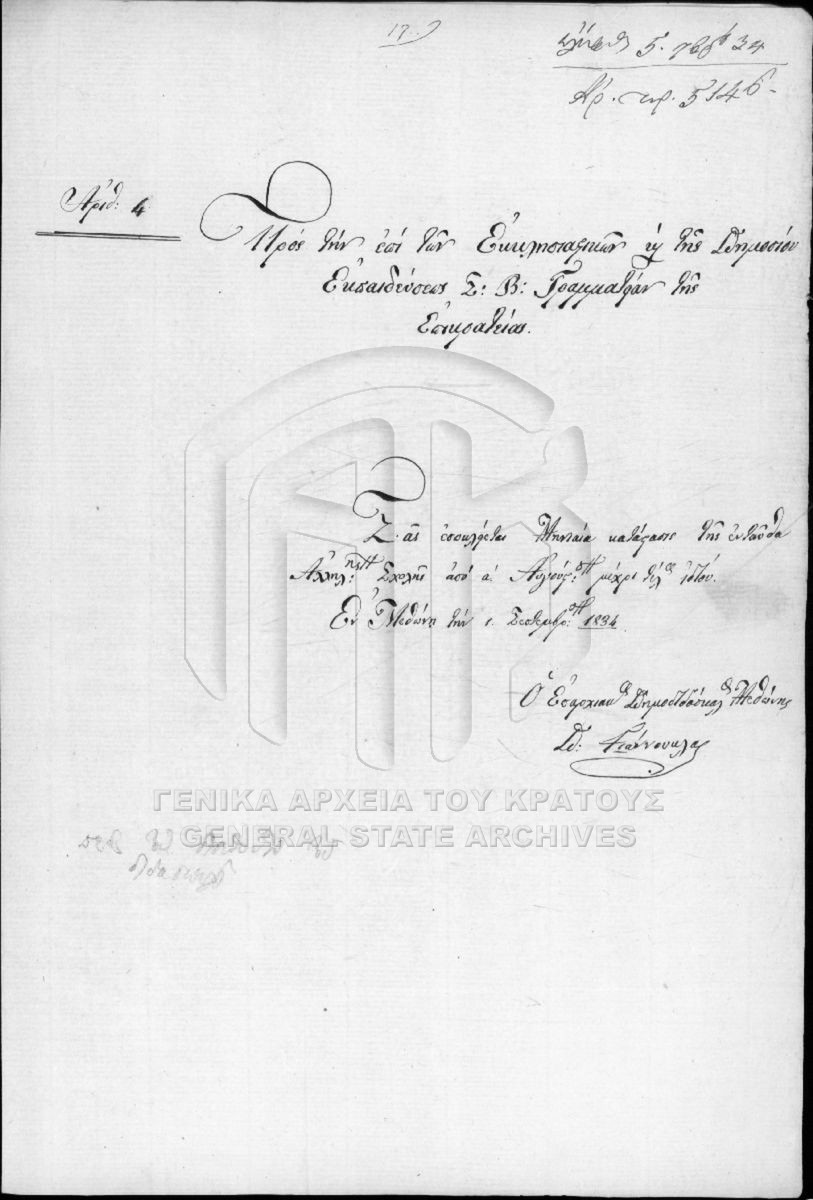 17.
ἐλήφθη 5. 7βρίου 34
Ἀρ. πρ. 5146.
Ἀριθ: 4
Πρὸς τὴν ἐπὶ τῶν Ἐκκλησιαστικῶν καὶ τῆς Δημοσίου
Ἐκπαιδεύσεως Σ: Β: Γραμματείαν τῆς
Ἐπικρατείας.
Σᾶς ἐσωκλείεται Μηνιαία κατάστασις τῆς ἐνταῦθα
Ἀλληλ:κῆς Σχολῆς ἀπὸ α. Αὐγούς:ου μέχρι τέλους ἰδίου.
Ἐν Μεθώνῃ τὴν 1. Σεπτεμβρ:ου 1834
Ὁ Ἐπαρχιακὸς Δημοδιδάσκαλος Μεθώνης
Γιαννουκλας
ΓΕΝΙΚΑ ΑΡΧΕΙΑ ΤΟΥ ΚΡΑΤΟΥΣ
GENERAL STATE ARCHIVES